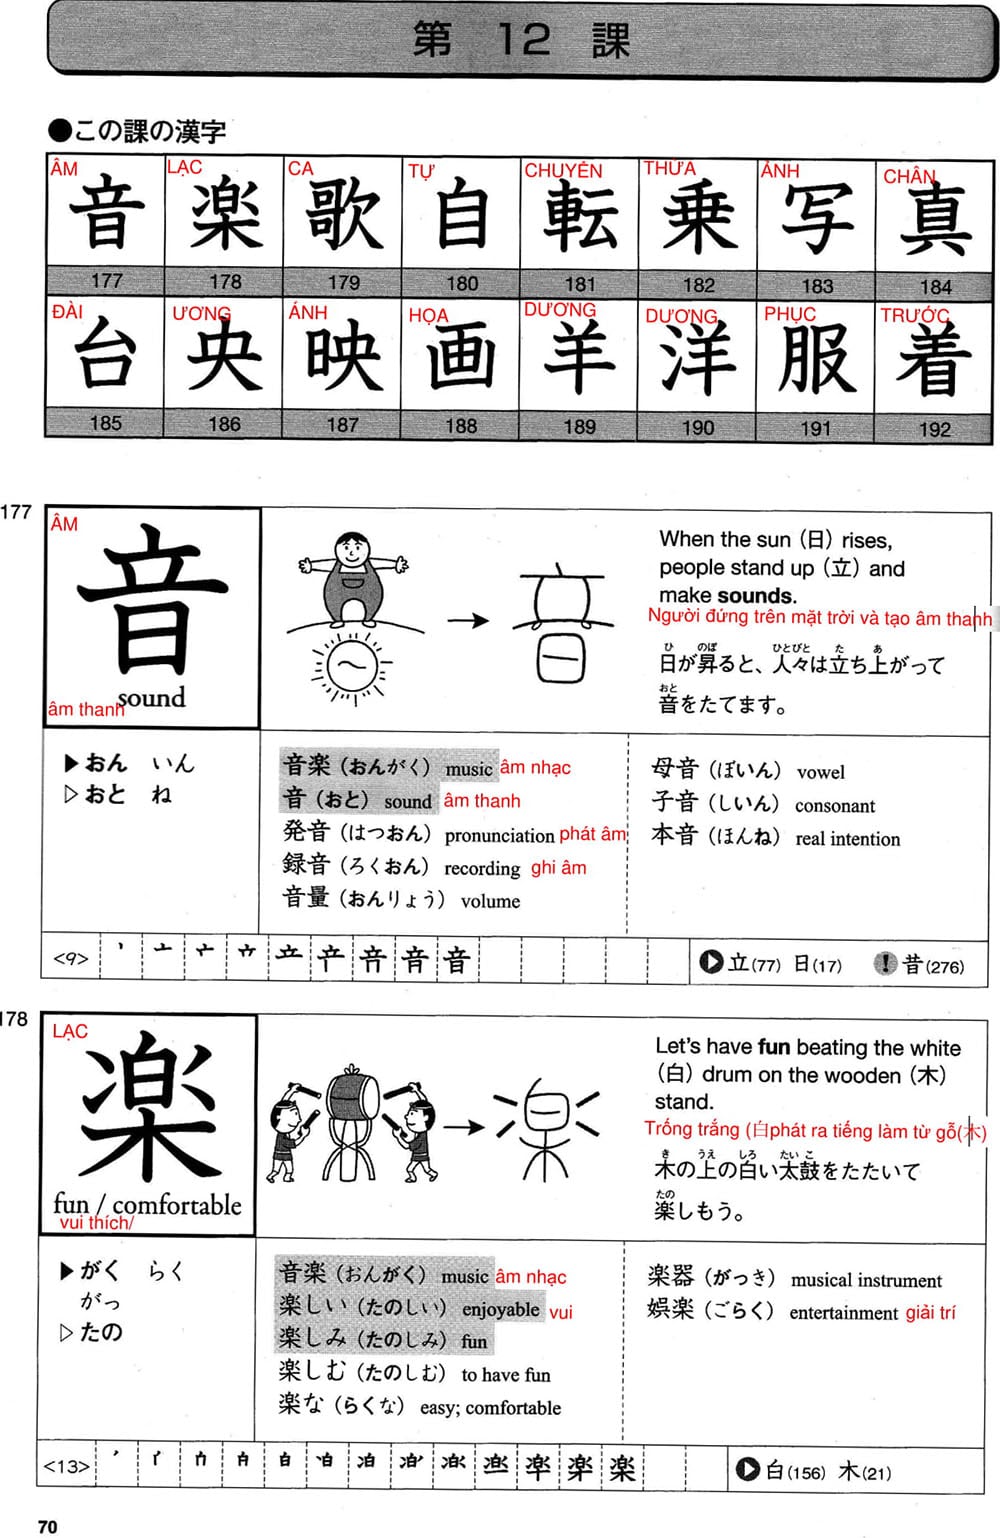 第 12 課
●この課の漢字
ÂM LẠC CA TỰ CHUYỂN THỪA ẢNH CHÂN
音 楽 歌 自 転 乗 写 真
177 178 179 180 181 182 183 184
ĐÀI ƯƠNG ÁNH HỌA DƯƠNG DƯƠNG PHỤC TRƯỚC
台 央 映 画 羊 洋 服 着
185 186 187 188 189 190 191 192
177
ÂM
音
sound
âm thanh
When the sun (日) rises,
people stand up (立) and
make sounds.
Người đứng trên mặt trời và tạo âm thanh
ひ のぼ ひとびと た あ
日が昇ると、人々は立ち上がって
おと
音をたてます。
▶おん いん
▷おと ね
音楽（おんがく） music âm nhạc
音（おと） sound âm thanh
発音（はつおん） pronunciation phát âm
録音（ろくおん） recording ghi âm
音量（おんりょう） volume
母音（ぼいん） vowel
子音（しいん） consonant
本音（ほんね） real intention
<9> 音
立(77) 日(17) ! 昔(276)
178
LẠC
楽
fun / comfortable
vui thích/
Let's have fun beating the white
(白) drum on the wooden (木)
stand.
Trống trắng (白phát ra tiếng làm từ gỗ(木)
き うえ しろ たいこ
木の上の白い太鼓をたたいて
たの
楽しもう。
▶がく らく
がっ
▷たの
音楽（おんがく） music âm nhạc
楽しい（たのしい） enjoyable vui
楽しみ（たのしみ） fun
楽しむ（たのしむ） to have fun
楽な（らくな） easy; comfortable
楽器（がっき） musical instrument
娯楽（ごらく） entertainment giải trí
<13> 楽
白(156) 木(21)
70